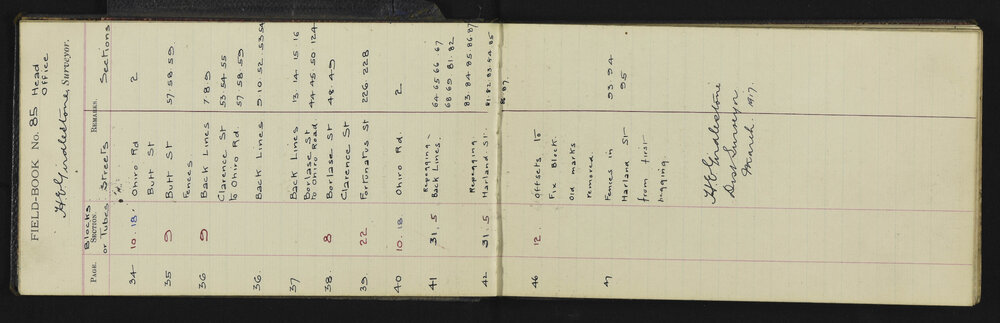 FIELD-BOOK No. 85 Head Office
H E Girdlestone, Surveyor.
PAGE. Blocks SECTION. or Tubes Streets REMARKS. Sections
34 10. 18. Ohiro Rd 2
Butt St
35 9 Butt St 57. 58 59.
Fences
36 9 Back Lines 7 8 9
Clarence St 53 54 55
to Ohiro Rd 57. 58. 59
36. Back Lines 9 10. 52. 53 54
37 Back Lines 13 14. 15 16
Borlase St 44 45 50 124
to Ohiro Road
38. 8 Borlase St 48. 49
Clarence St
39. 22 Fortunatus St 226 228
40 10. 18 Ohiro Rd. 2
41 31. 5 Repegging 64 65 66 67
Back Lines. 68 69 81. 82
83. 84. 85. 86. 87
42 31. 5 Repegging
Harland St. 81. 82. 83. 84. 85
46 12. Offsets to
Fix Block.
Old marks
removed
47 Fences in 93 94
Harland St 95
from first
pegging
H E Girdlestone
Dist Surveyor
March. 1917.